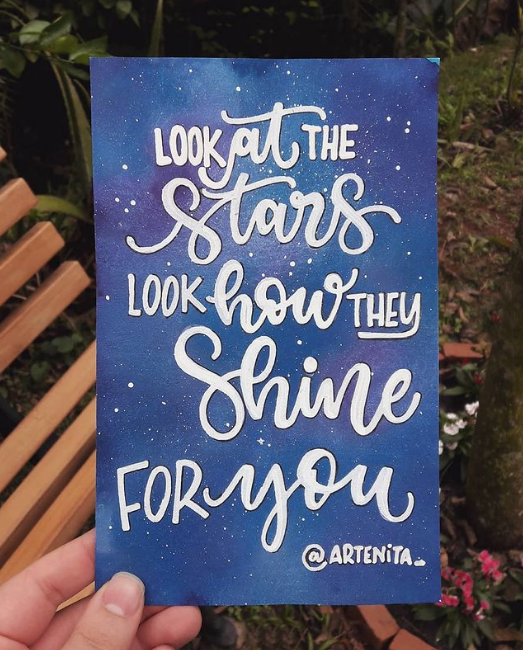 LOOK at THE
Stars
LOOK how THEY
Shine
FOR you
@ARTENiTA_